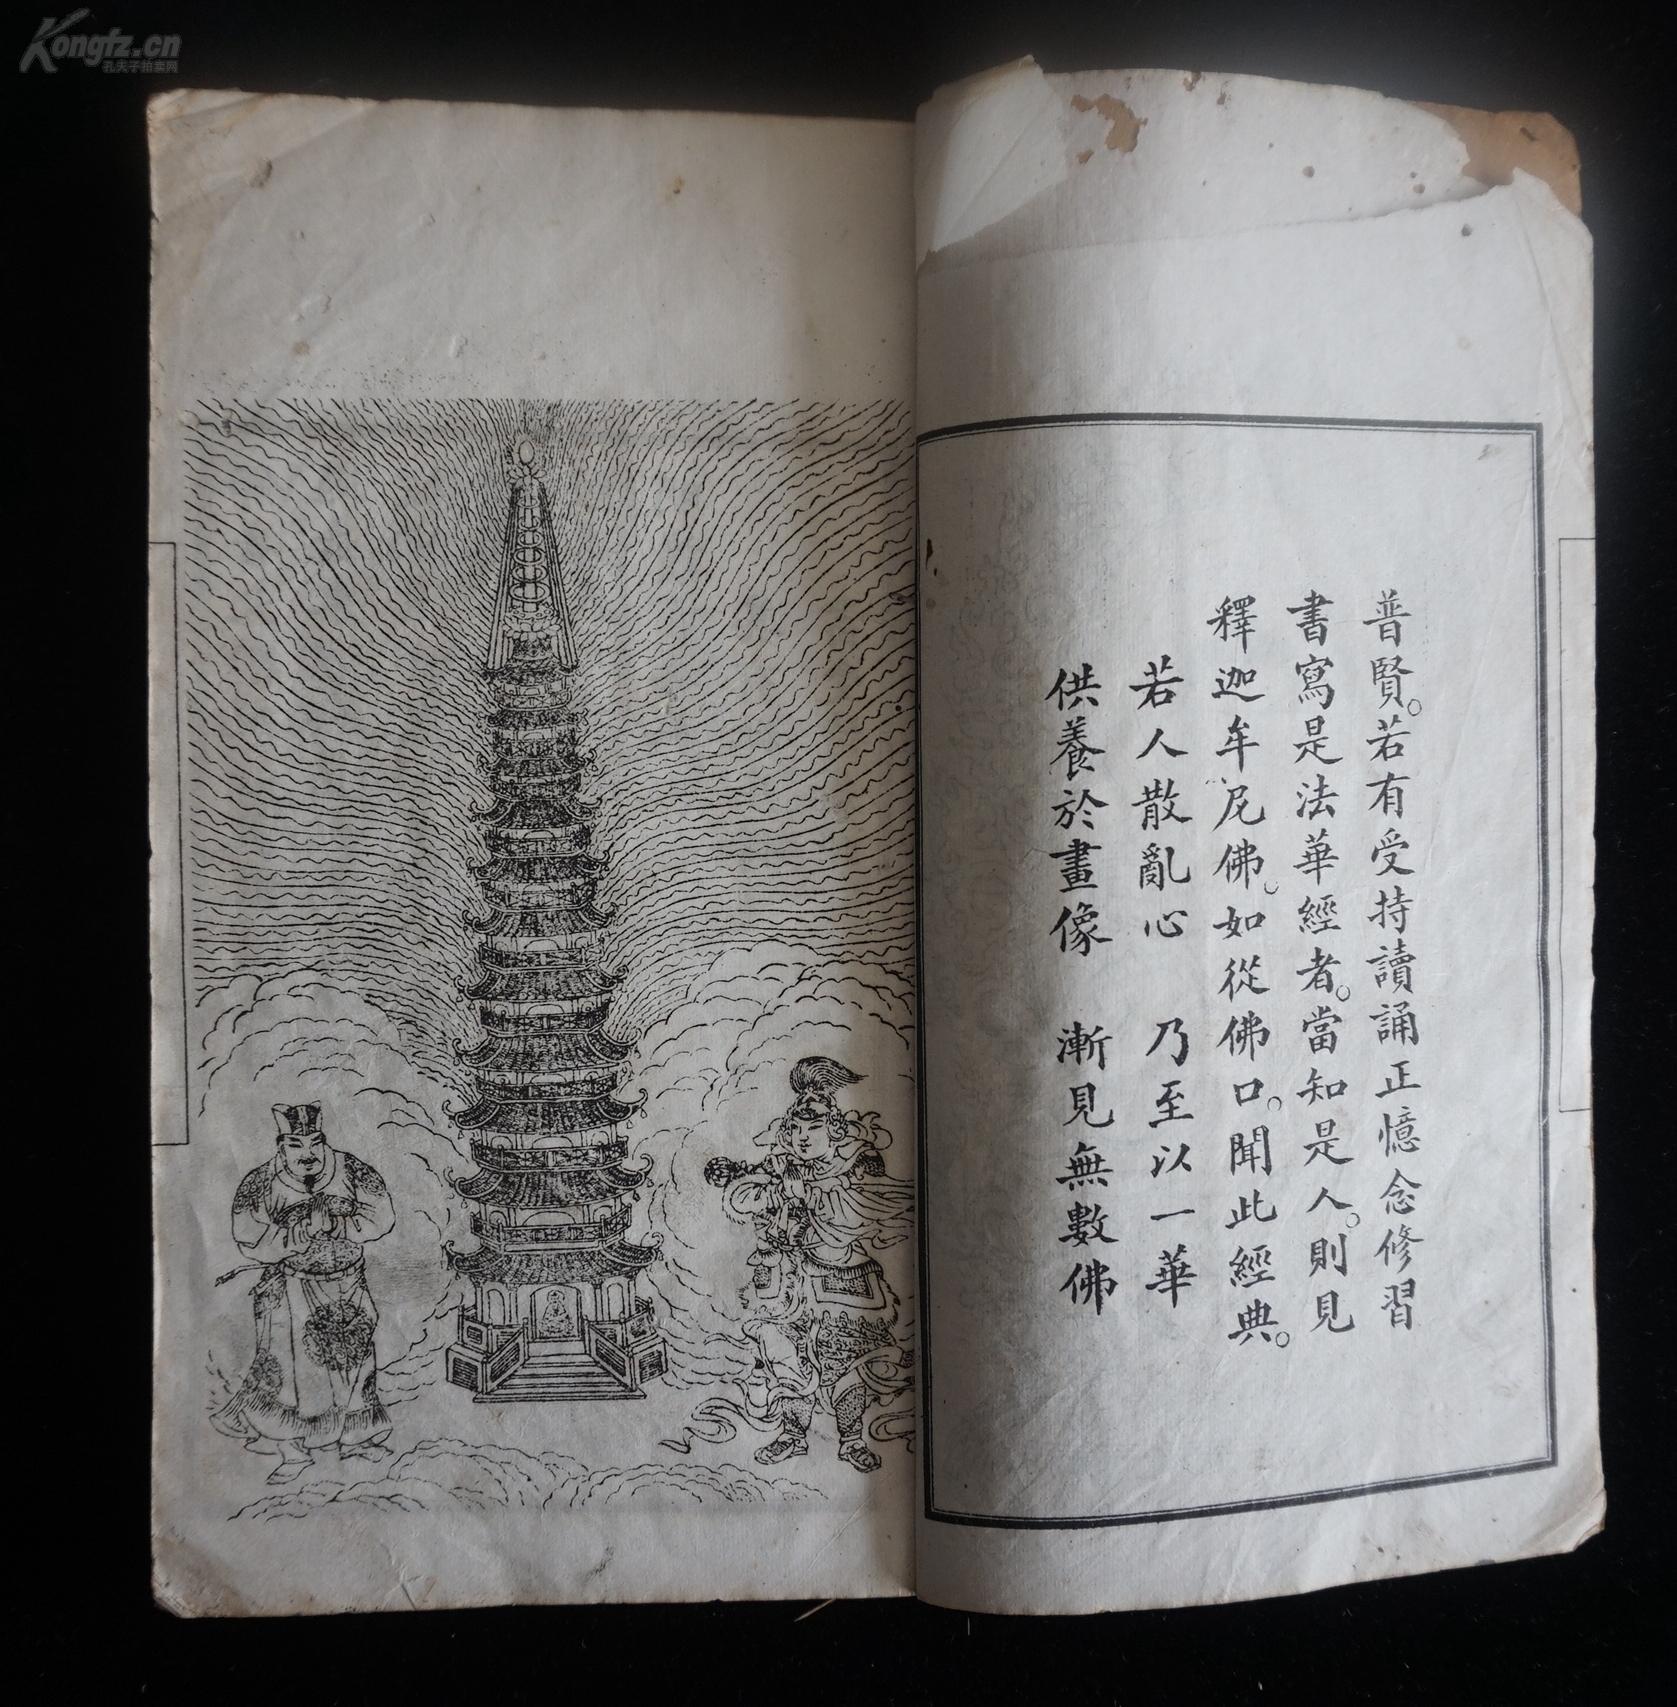 Kongfz.cn
孔夫子拍卖网
普賢。若有受持讀誦正憶念修習
書寫是法華經者。當知是人。則見
釋迦牟尼佛。如從佛口。聞此經典。
若人散亂心　乃至以一華
供養於畫像　漸見無數佛